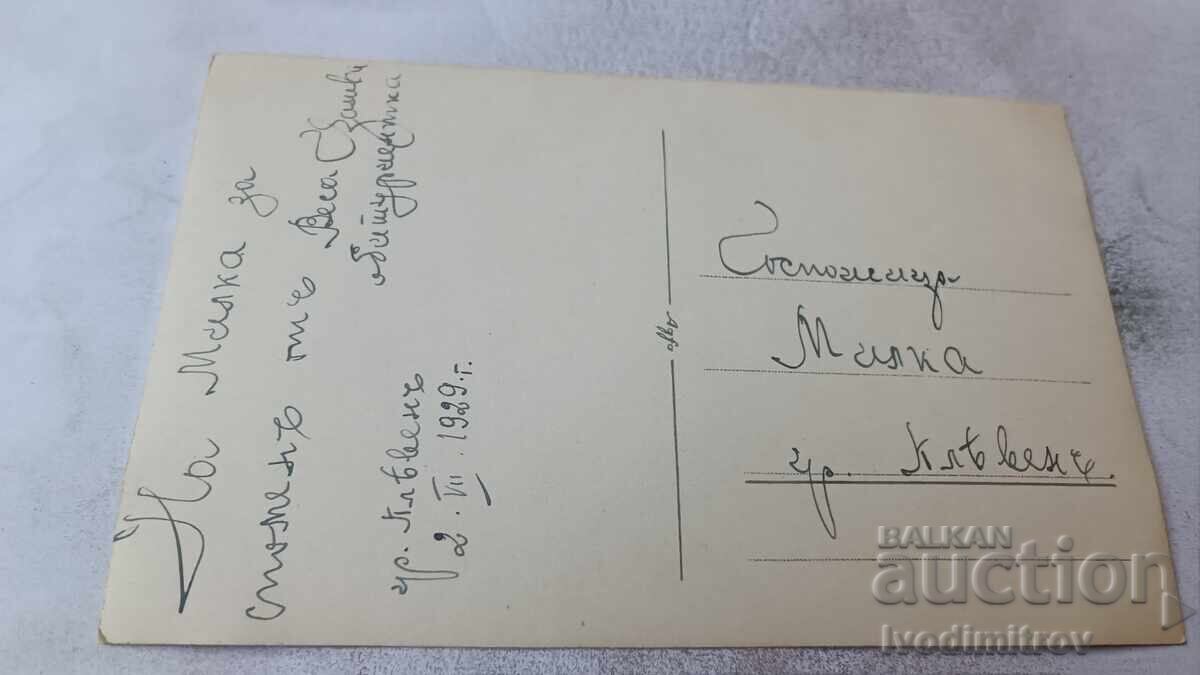 На Милка за
споменъ отъ Веса
абитуриентка
гр. Плѣвенъ
2. VII. 1929 г.
Agfa
Госпожица
Милка
гр. Плѣвенъ
BALKAN
auction
Ivodimitrov